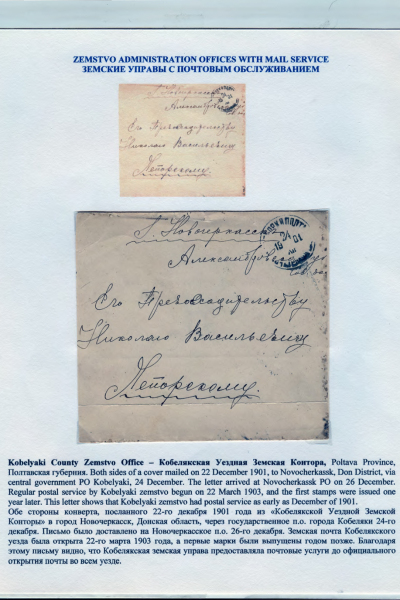 ZEMSTVO ADMINISTRATION OFFICES WITH MAIL SERVICE
ЗЕМСКИЕ УПРАВЫ С ПОЧТОВЫМ ОБСЛУЖИВАНИЕМ
Г. Новочеркасскъ
Его Превосходительству
Николаю Васильевичу
Г. Новочеркасскъ
Его Превосходительству
Николаю Васильевичу
Kobelyaki County Zemstvo Office – Кобелякская Уездная Земская Контора, Poltava Province,
Полтавская губерния. Both sides of a cover mailed on 22 December 1901, to Novocherkassk, Don District, via
central government PO Kobelyaki, 24 December. The letter arrived at Novocherkassk PO on 26 December.
Regular postal service by Kobelyaki zemstvo begun on 22 March 1903, and the first stamps were issued one
year later. This letter shows that Kobelyaki zemstvo had postal service as early as December of 1901.
Обе стороны конверта, посланного 22-го декабря 1901 года из «Кобелякской Уездной Земской
Конторы» в город Новочеркасск, Донская область, через государственное п.о. города Кобеляки 24-го
декабря. Письмо было доставлено на Новочеркасское п.о. 26-го декабря. Земская почта Кобелякского
уезда была открыта 22-го марта 1903 года, а первые марки были выпущены годом позже. Благодаря
этому письму видно, что Кобелякская земская управа предоставляла почтовые услуги до официального
открытия почты во всем уезде.